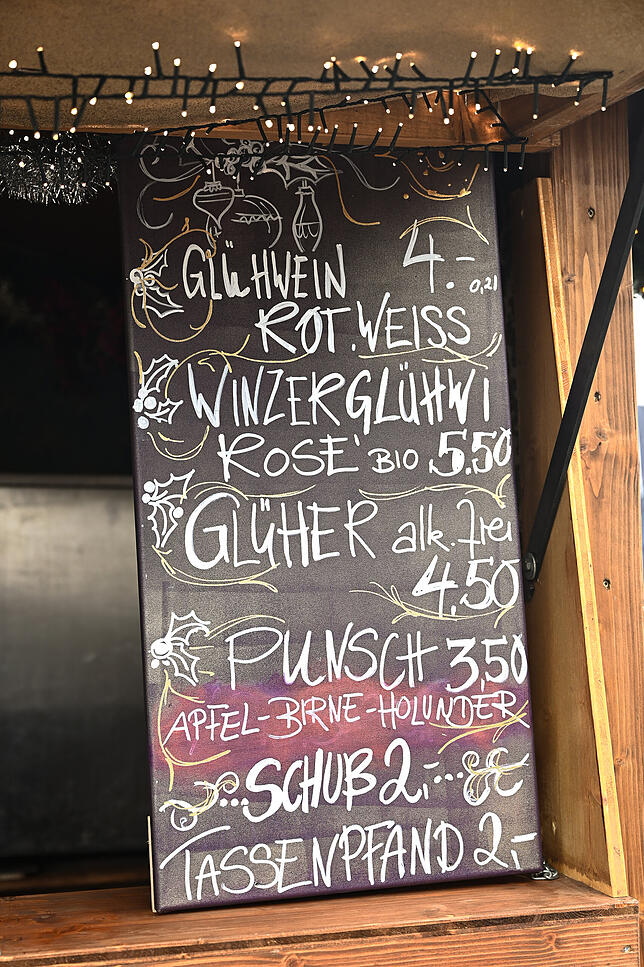 GLÜHWEIN 4.- 0,2l
ROT. WEISS
WINZERGLÜHWI
ROSE' BIO 5.50
GLÜHER alk. frei
4,50
PUNSCH 3,50
APFEL-BIRNE-HOLUNDER
...SCHUß 2,-...
TASSENPFAND 2,-